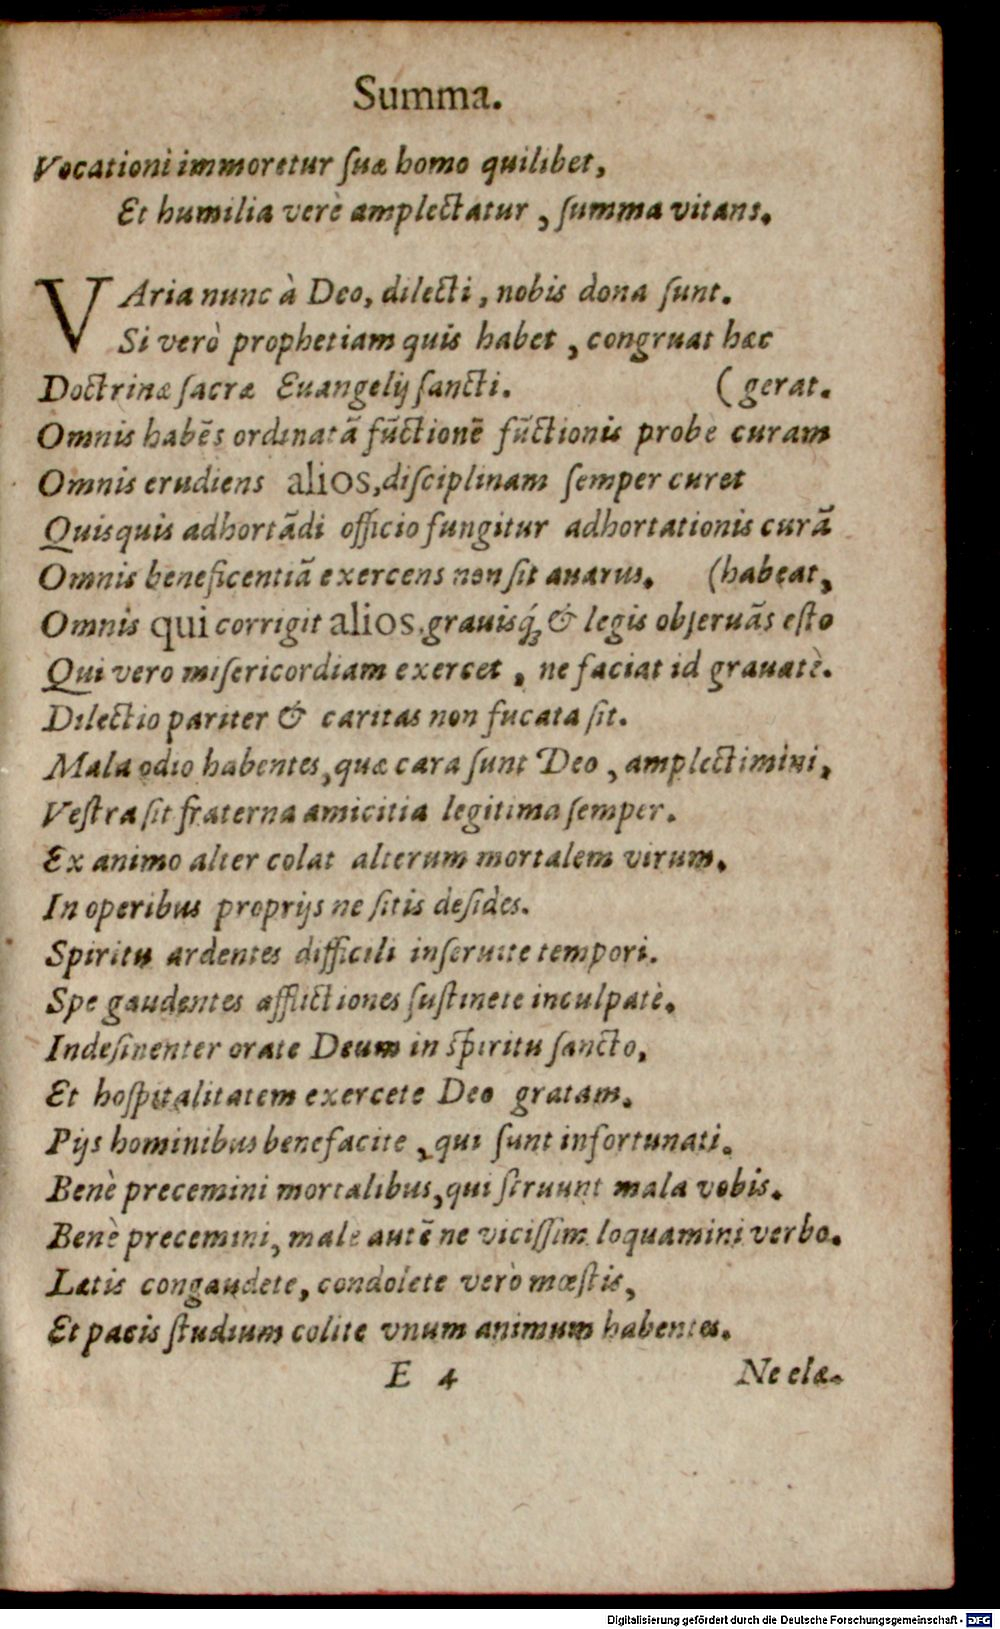 Summa.
Vocationi immoretur ſuæ homo quilibet,
Et humilia verè amplectatur, ſumma vitans.
VAria nunc à Deo, dilecti, nobis dona ſunt.
Si verò prophetiam quis habet, congruat hæc
Doctrinæ ſacræ Euangelij ſancti. (gerat.
Omnis habẽs ordinatã fũctionẽ fũctionis probè curam
Omnis erudiens alios, diſciplinam ſemper curet
Quisquis adhortãdi officio fungitur adhortationis curã
Omnis beneficentiã exercens non ſit auarus. (habeat,
Omnis qui corrigit alios, grauisq́; & legis obſeruãs eſto
Qui vero miſericordiam exercet, ne faciat id grauatè.
Dilectio pariter & caritas non fucata ſit.
Mala odio habentes, quæ cara ſunt Deo, amplectimini,
Veſtra ſit fraterna amicitia legitima ſemper.
Ex animo alter colat alterum mortalem virum.
In operibus proprijs ne ſitis deſides.
Spiritu ardentes difficili inſeruite tempori.
Spe gaudentes afflictiones ſuſtinete inculpatè.
Indeſinenter orate Deum in ſpiritu ſancto,
Et hoſpitalitatem exercete Deo gratam.
Pijs hominibus benefacite, qui ſunt infortunati.
Benè precemini mortalibus, qui ſtruunt mala vobis.
Benè precemini, male autẽ ne viciſſim loquamini verbo.
Lætis congaudete, condolete verò mœſtis,
Et pacis ſtudium colite vnum animum habentes.
E 4 Ne elæ-
Digitalisierung gefördert durch die Deutsche Forschungsgemeinschaft - DFG